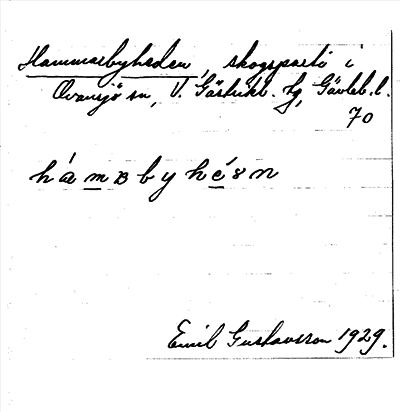 Hammarbyheden, skogsparti i
Ovansjö sn, V. Gästrikl. tg, Gävleb. l.
70
hámʙbyhéən
Emil Gustavsson 1929.